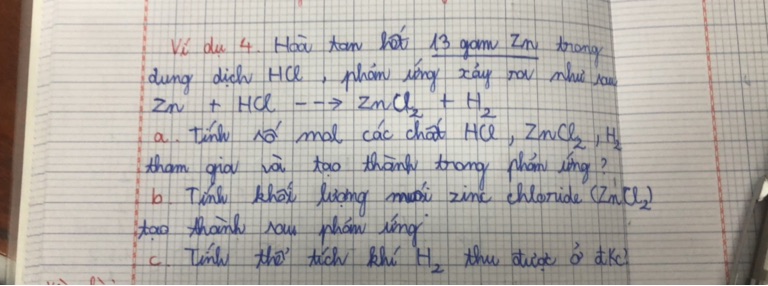 Ví dụ 4. Hoà tan hết 13 gam Zn trong
dung dịch HCl, phản ứng xảy ra như sau
Zn + HCl ---> ZnCl₂ + H₂
a. Tính số mol các chất HCl, ZnCl₂, H₂
tham gia và tạo thành trong phản ứng?
b. Tính khối lượng muối zinc chloride (ZnCl₂)
tạo thành sau phản ứng
c. Tính thể tích khí H₂ thu được ở đkc?